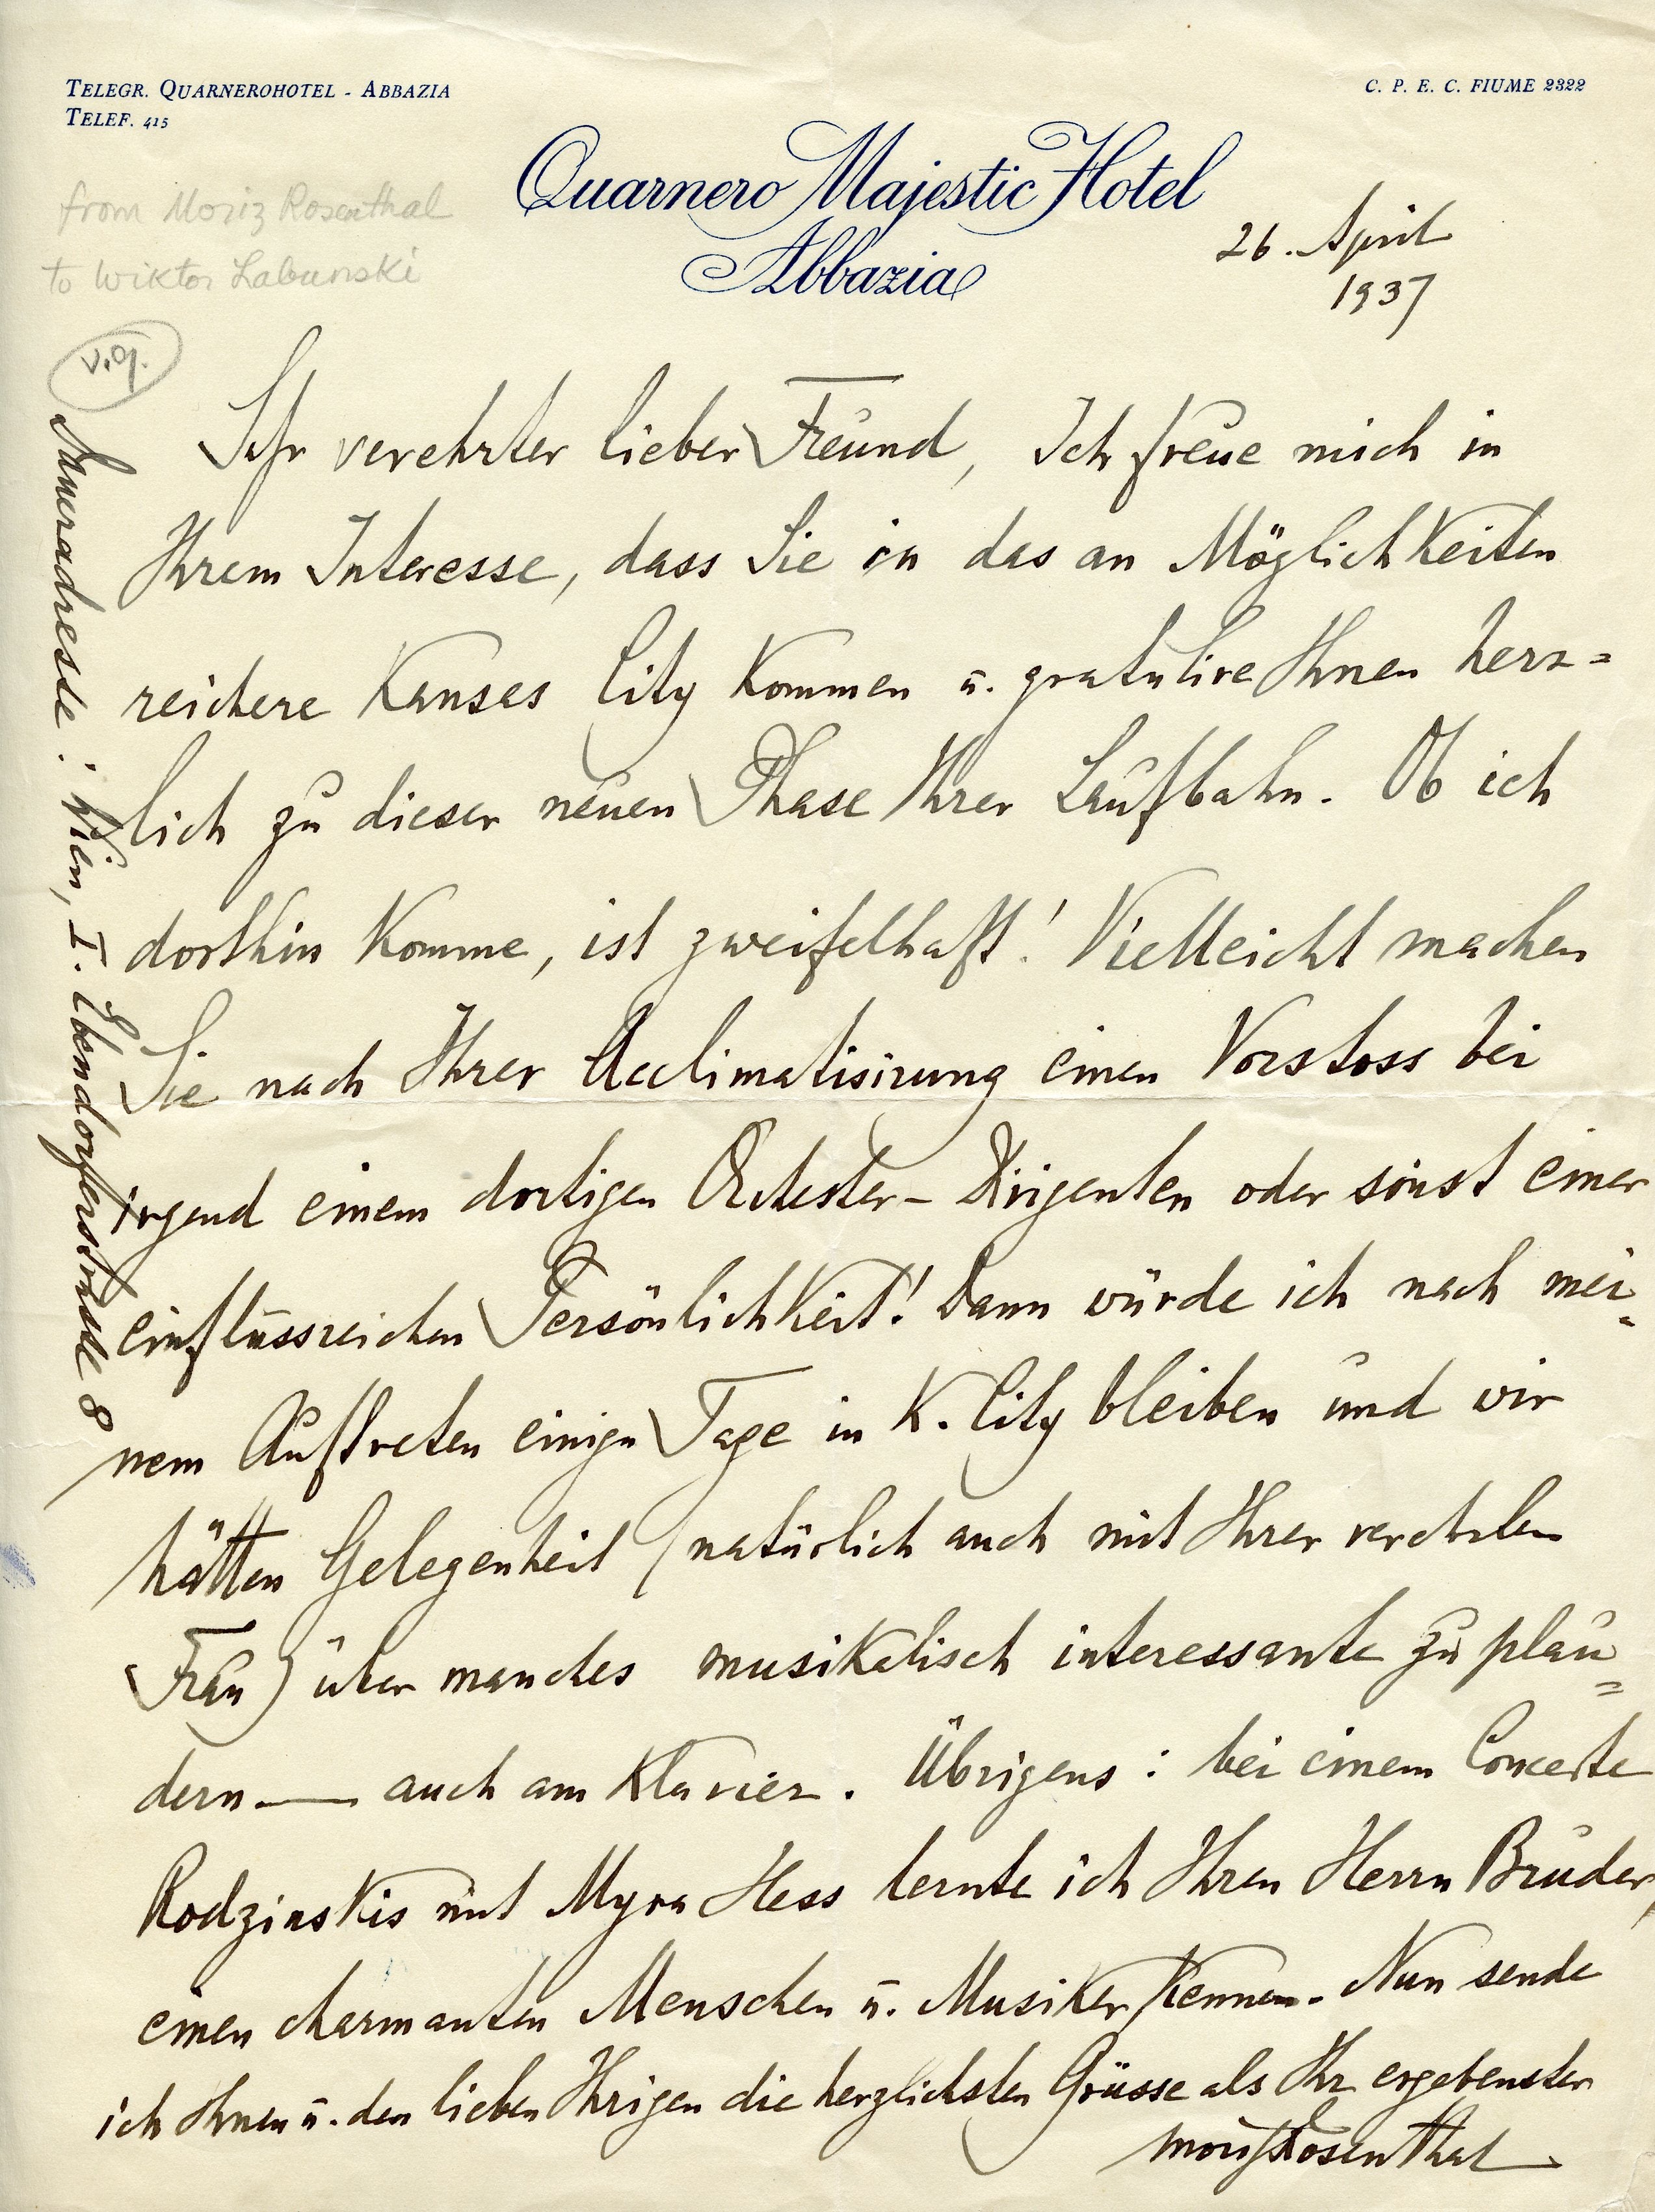 TELEGR. QUARNEROHOTEL - ABBAZIA
TELEF. 415
C. P. E. C. FIUME 2322
Quarnero Majestic Hotel
Abbazia
from Moriz Rosenthal
to Wiktor Labunski
26. April
1937
v.g.
Sehr verehrter lieber Freund, Ich freue mich in
Ihrem Interesse, dass Sie in das an Möglichkeiten
reichere Kansas City kommen u. gratulire Ihnen herz=
lich zu dieser neuen Phase Ihrer Laufbahn. Ob ich
dorthin komme, ist zweifelhaft! Vielleicht machen
Sie nach Ihrer Acclimatisirung einen Vorstoss bei
irgend einem dortigen Orchester- Dirigenten oder sonst einer
einflussreichen Persönlichkeit! Dann würde ich nach mei=
nem Auftreten einige Tage in K. City bleiben und wir
hätten Gelegenheit (natürlich auch mit Ihrer verehrten
Frau) über manches musikalisch interessante zu plau=
dern — auch am Klavier. Übrigens: bei einem Concerte
Rodzinskis mit Myra Hess lernte ich Ihren Herrn Bruder,
einen charmanten Menschen u. Musiker kennen. Nun sende
ich Ihnen u. den lieben Ihrigen die herzlichsten Grüsse als Ihr ergebenster
Moriz Rosenthal
Daueradresse: Wien, I. Ebendorferstrasse 8